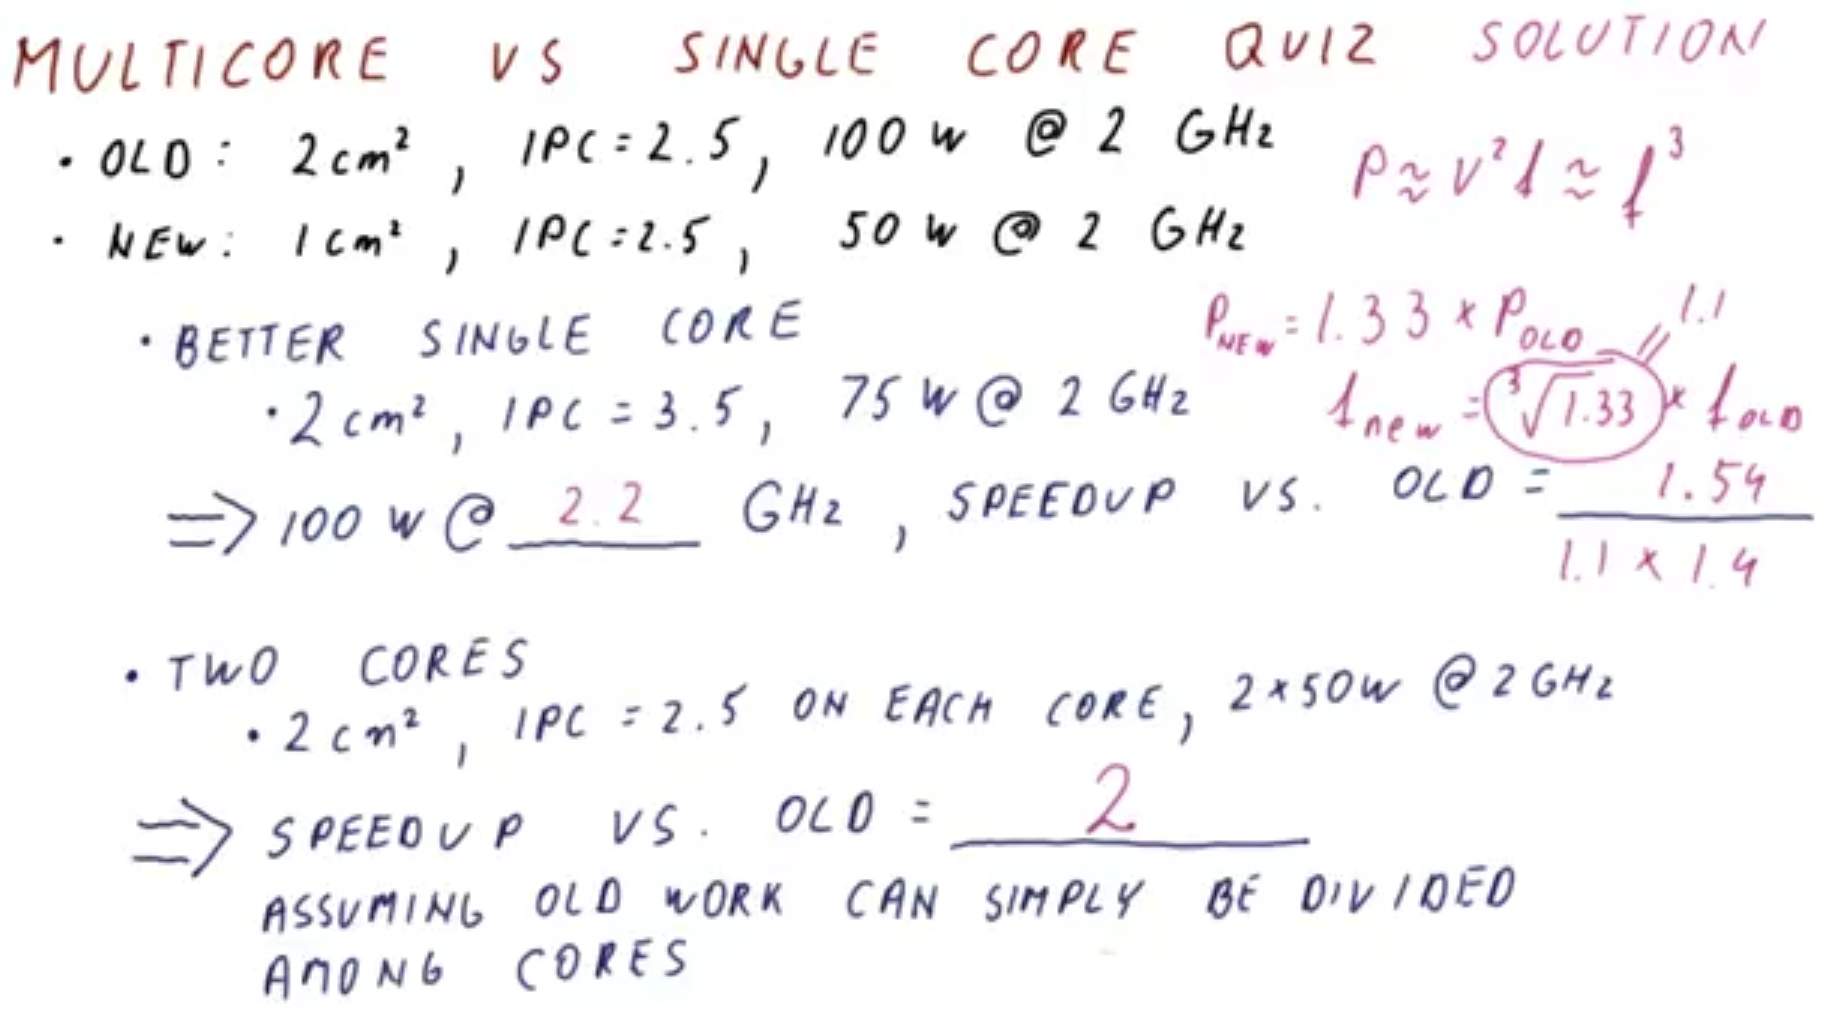 MULTICORE VS SINGLE CORE QUIZ SOLUTION
• OLD: 2cm², IPC=2.5, 100 W @ 2 GHz
P ≈ V²f ≈ f³
• NEW: 1cm², IPC=2.5, 50 W @ 2 GHz
• BETTER SINGLE CORE
P_NEW = 1.33 × P_OLD
1.1
• 2cm², IPC = 3.5, 75 W @ 2 GHz
f_new = ³√1.33 × f_OLD
⇒ 100 W @ 2.2 GHz, SPEEDUP VS. OLD = 1.54
1.1 × 1.4
• TWO CORES
• 2cm², IPC = 2.5 ON EACH CORE, 2×50W @ 2GHz
⇒ SPEEDUP VS. OLD = 2
ASSUMING OLD WORK CAN SIMPLY BE DIVIDED
AMONG CORES